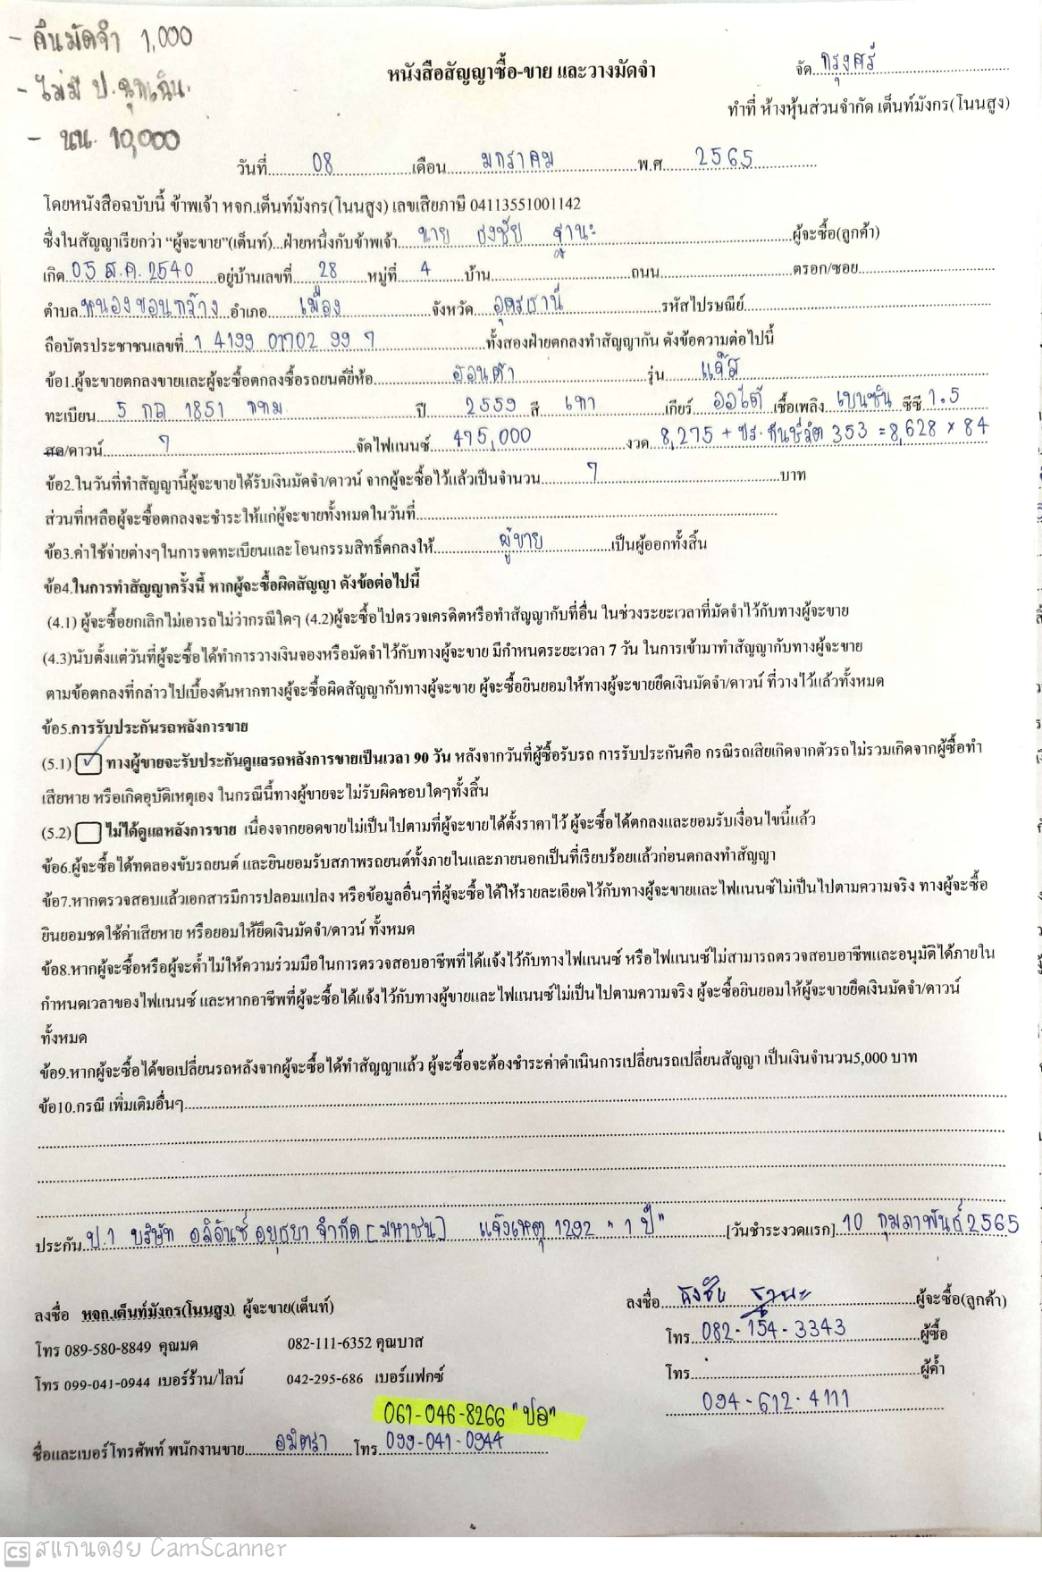 - คืนมัดจำ 1,000
- ไม่มี ป. ฉุกเฉิน.
- นน. 10,000
หนังสือสัญญาซื้อ-ขาย และวางมัดจำ
จัด กรุงศรี
ทำที่ ห้างหุ้นส่วนจำกัด เต็นท์มังกร(โนนสูง)
วันที่ 08 เดือน มกราคม พ.ศ 2565
โดยหนังสือฉบับนี้ ข้าพเจ้า หจก.เต็นท์มังกร(โนนสูง) เลขเสียภาษี 04113551001142
ซึ่งในสัญญาเรียกว่า “ผู้จะขาย”(เต็นท์)...ฝ่ายหนึ่งกับข้าพเจ้า นาย ธงชัย ฐานะ ผู้จะซื้อ(ลูกค้า)
เกิด 05 ส.ค. 2540 อยู่บ้านเลขที่ 28 หมู่ที่ 4 บ้าน ถนน ตรอก/ซอย
ตำบล หนองขอนกว้าง อำเภอ เมือง จังหวัด อุดรธานี รหัสไปรษณีย์
ถือบัตรประชาชนเลขที่ 1 4199 01702 99 7 ทั้งสองฝ่ายตกลงทำสัญญากัน ดังข้อความต่อไปนี้
ข้อ1.ผู้จะขายตกลงขายและผู้จะซื้อตกลงซื้อรถยนต์ยี่ห้อ ฮอนด้า รุ่น แจ๊ส
ทะเบียน 5 กฎ 1851 กทม ปี 2559 สี เทา เกียร์ ออโต้ เชื้อเพลิง เบนซิน ซีซี 1.5
สด/ดาวน์ 7 จัดไฟแนนซ์ 475,000 งวด 8,275 + ปร.ภันชีวิต 353 = 8,628 x 84
ข้อ2.ในวันที่ทำสัญญานี้ผู้จะขายได้รับเงินมัดจำ/ดาวน์ จากผู้จะซื้อไว้แล้วเป็นจำนวน 7 บาท
ส่วนที่เหลือผู้จะซื้อตกลงจะชำระให้แก่ผู้จะขายทั้งหมดในวันที่
ข้อ3.ค่าใช้จ่ายต่างๆในการจดทะเบียนและโอนกรรมสิทธิ์ตกลงให้ ผู้ขาย เป็นผู้ออกทั้งสิ้น
ข้อ4.ในการทำสัญญาครั้งนี้ หากผู้จะซื้อผิดสัญญา ดังข้อต่อไปนี้
(4.1) ผู้จะซื้อยกเลิกไม่เอารถไม่ว่ากรณีใดๆ (4.2)ผู้จะซื้อไปตรวจเครดิตหรือทำสัญญากับที่อื่น ในช่วงระยะเวลาที่มัดจำไว้กับทางผู้จะขาย
(4.3)นับตั้งแต่วันที่ผู้จะซื้อได้ทำการวางเงินจองหรือมัดจำไว้กับทางผู้จะขาย มีกำหนดระยะเวลา 7 วัน ในการเข้ามาทำสัญญากับทางผู้จะขาย
ตามข้อตกลงที่กล่าวไปเบื้องต้นหากทางผู้จะซื้อผิดสัญญากับทางผู้จะขาย ผู้จะซื้อยินยอมให้ทางผู้จะขายยึดเงินมัดจำ/ดาวน์ ที่วางไว้แล้วทั้งหมด
ข้อ5.การรับประกันรถหลังการขาย
(5.1) ✓ ทางผู้ขายจะรับประกันดูแลรถหลังการขายเป็นเวลา 90 วัน หลังจากวันที่ผู้ซื้อรับรถ การรับประกันคือ กรณีรถเสียเกิดจากตัวรถไม่รวมเกิดจากผู้ซื้อทำ
เสียหาย หรือเกิดอุบัติเหตุเอง ในกรณีนี้ทางผู้ขายจะไม่รับผิดชอบใดๆทั้งสิ้น
(5.2) ไม่ได้ดูแลหลังการขาย เนื่องจากยอดขายไม่เป็นไปตามที่ผู้จะขายได้ตั้งราคาไว้ ผู้จะซื้อได้ตกลงและยอมรับเงื่อนไขนี้แล้ว
ข้อ6.ผู้จะซื้อได้ทดลองขับรถยนต์ และยินยอมรับสภาพรถยนต์ทั้งภายในและภายนอกเป็นที่เรียบร้อยแล้วก่อนตกลงทำสัญญา
ข้อ7.หากตรวจสอบแล้วเอกสารมีการปลอมแปลง หรือข้อมูลอื่นๆที่ผู้จะซื้อได้ให้รายละเอียดไว้กับทางผู้จะขายและไฟแนนซ์ไม่เป็นไปตามความจริง ทางผู้จะซื้อ
ยินยอมชดใช้ค่าเสียหาย หรือยอมให้ยึดเงินมัดจำ/ดาวน์ ทั้งหมด
ข้อ8.หากผู้จะซื้อหรือผู้จะค้ำไม่ให้ความร่วมมือในการตรวจสอบอาชีพที่ได้แจ้งไว้กับทางไฟแนนซ์ หรือไฟแนนซ์ไม่สามารถตรวจสอบอาชีพและอนุมัติได้ภายใน
กำหนดเวลาของไฟแนนซ์ และหากอาชีพที่ผู้จะซื้อได้แจ้งไว้กับทางผู้ขายและไฟแนนซ์ไม่เป็นไปตามความจริง ผู้จะซื้อยินยอมให้ผู้จะขายยึดเงินมัดจำ/ดาวน์
ทั้งหมด
ข้อ9.หากผู้จะซื้อได้ขอเปลี่ยนรถหลังจากผู้จะซื้อได้ทำสัญญาแล้ว ผู้จะซื้อจะต้องชำระค่าดำเนินการเปลี่ยนรถเปลี่ยนสัญญา เป็นเงินจำนวน5,000 บาท
ข้อ10.กรณี เพิ่มเติมอื่นๆ
ประกัน ป.1 บริษัท อลิอันซ์ อยุธยา จำกัด [มหาชน] แจ้งเหตุ 1292 " 1 ปี" [วันชำระงวดแรก] 10 กุมภาพันธ์ 2565
ลงชื่อ หจก.เต็นท์มังกร(โนนสูง) ผู้จะขาย(เต็นท์) ลงชื่อ ธงชัย ฐานะ ผู้จะซื้อ(ลูกค้า)
โทร 089-580-8849 คุณมด 082-111-6352 คุณบาส โทร 082-154-3343 ผู้ซื้อ
โทร 099-041-0944 เบอร์ร้าน/ไลน์ 042-295-686 เบอร์แฟกซ์ โทร ผู้ค้ำ
094-612-4111
061-046-8266 "ปอ"
ชื่อและเบอร์โทรศัพท์ พนักงานขาย อมิตรา โทร 099-041-0944
CS สแกนด้วย CamScanner